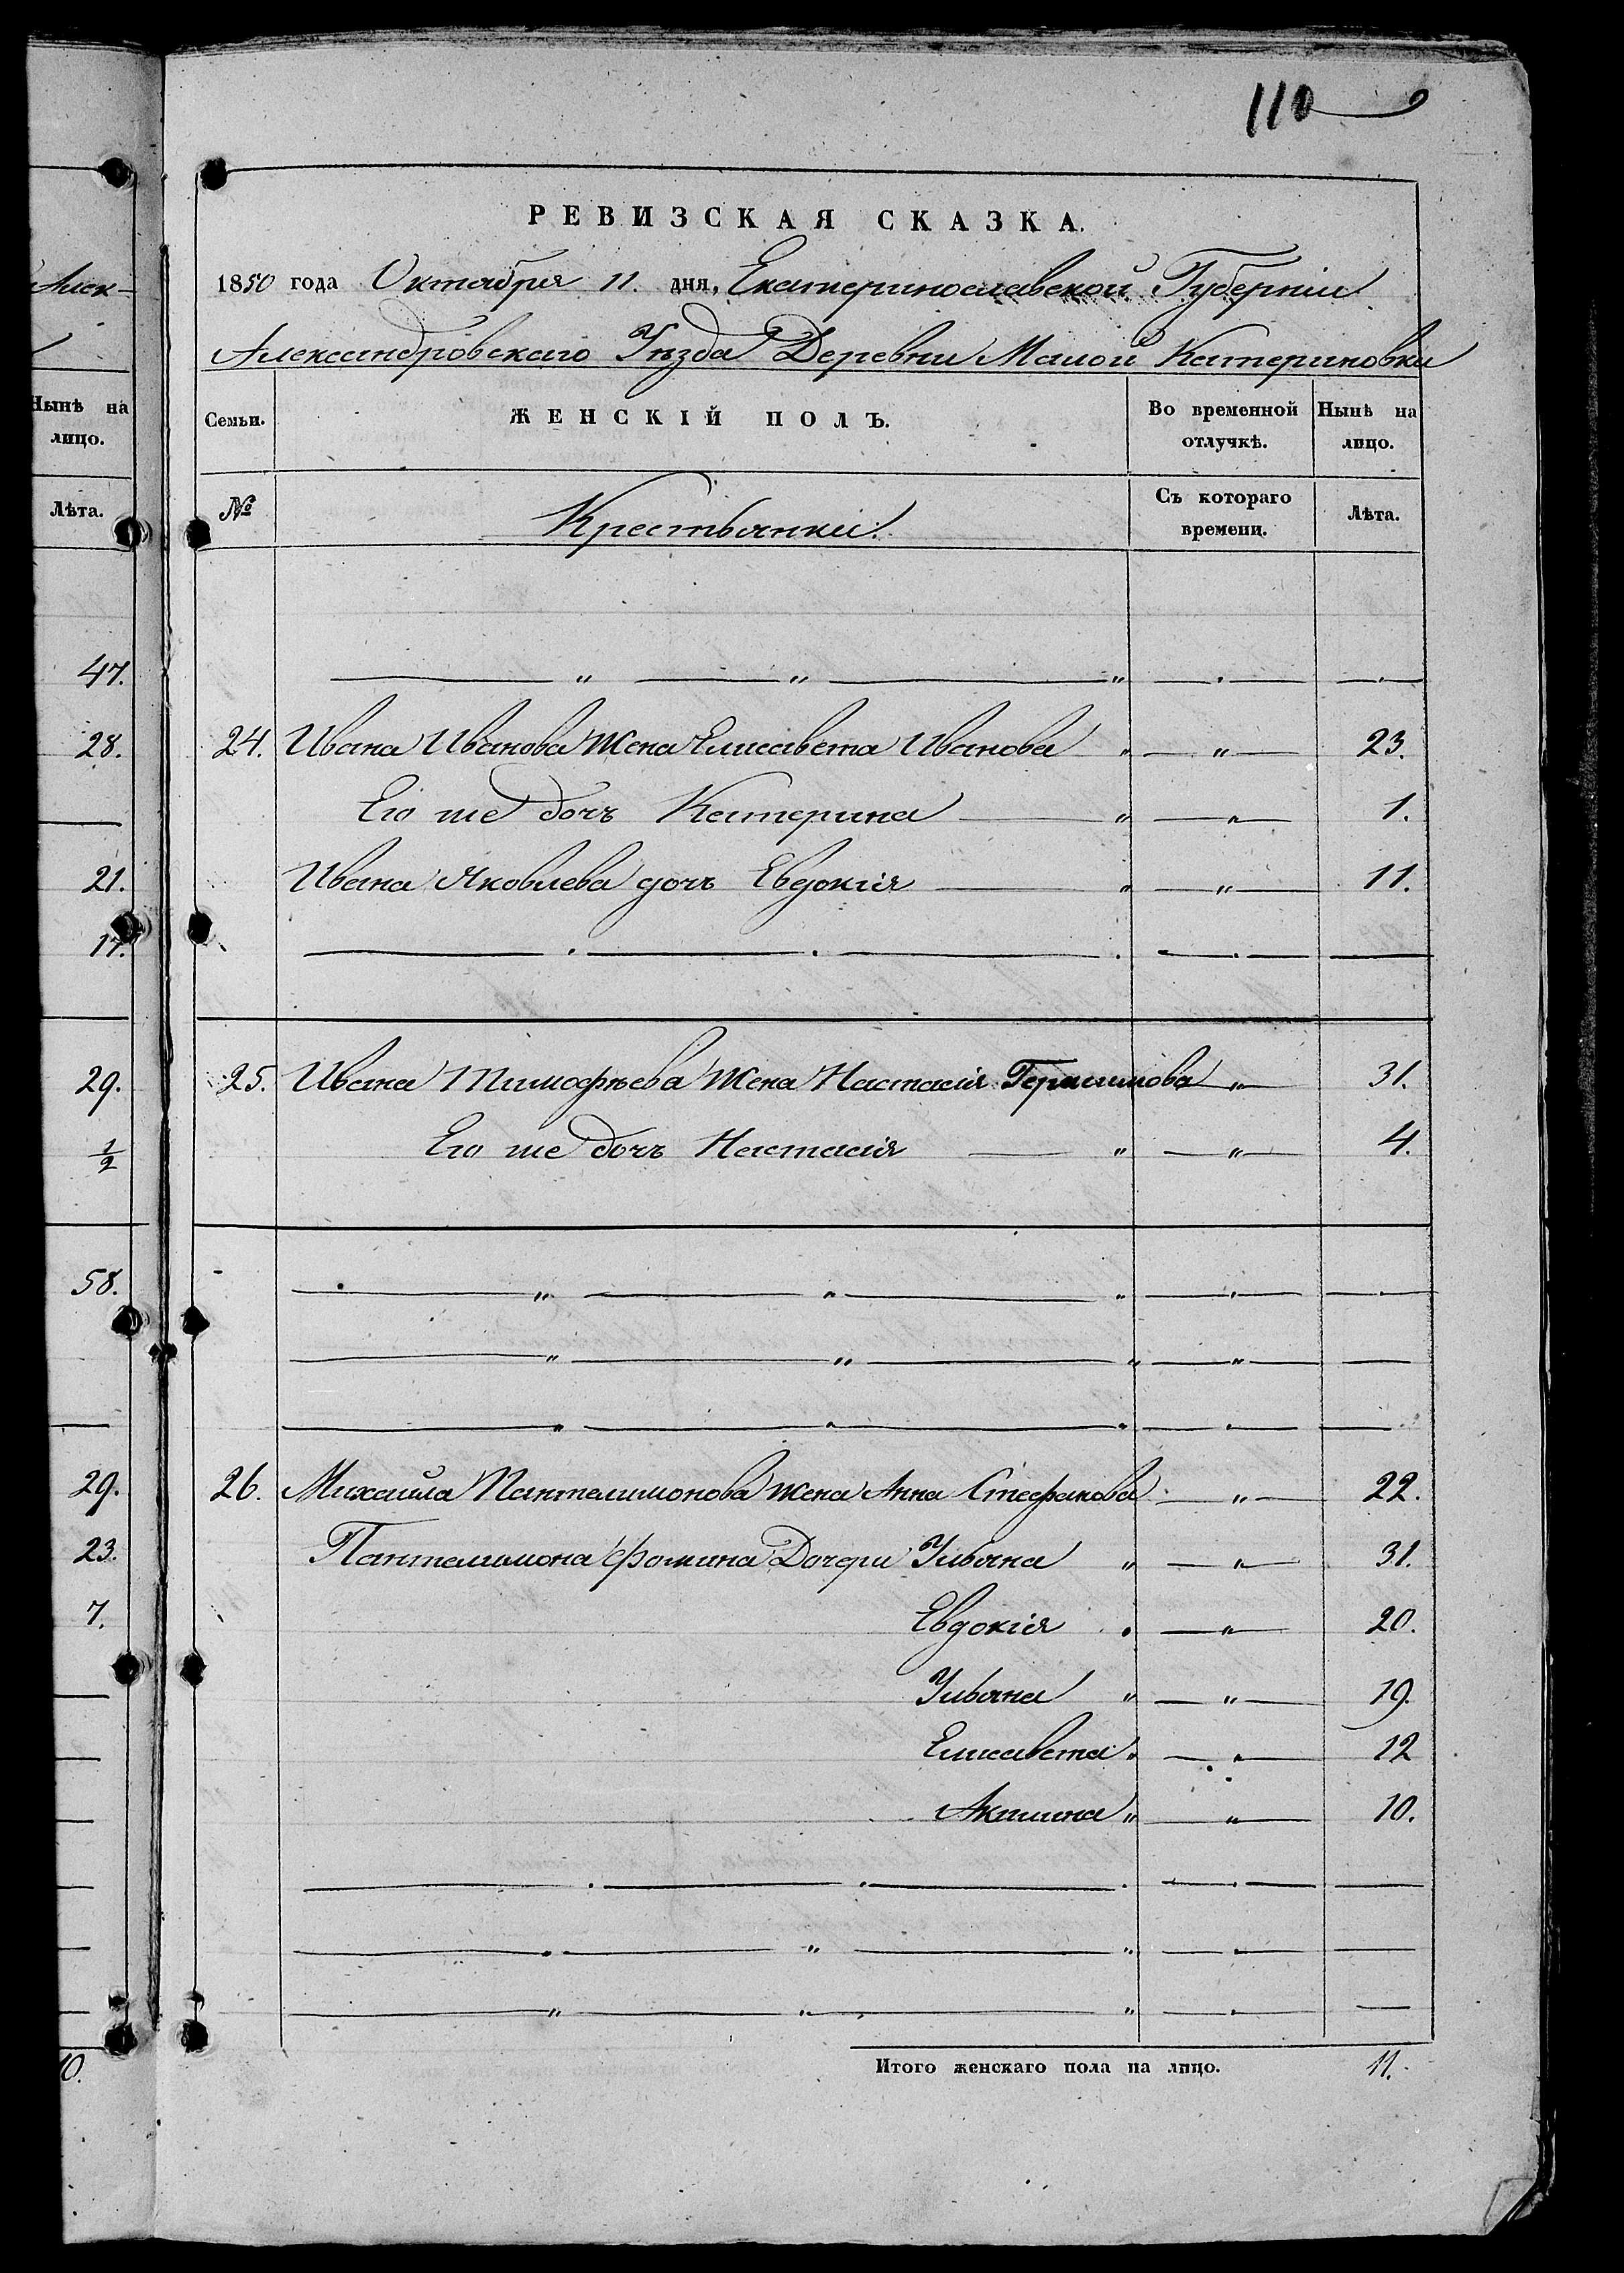 110
РЕВИЗСКАЯ СКАЗКА.
1850 года Октября 11. дня, Екатеринославской Губерніи
Александровскаго Уѣзда Деревни Малой Катериновки
Алек-
Нынѣ на
лицо.
Лѣта.
47.
28.
21.
17.
29.
1/2
58.
29.
23.
7.
10.
Семьи. ЖЕНСКІЙ ПОЛЪ. Во временной отлучкѣ. Нынѣ на лицо.
№ Крестьянки. Съ котораго времени. Лѣта.
24. Ивана Иванова Жена Елисавета Иванова " — " — 23.
Его же дочь Катерина — " — " — 1.
Ивана Яковлева дочь Евдокія — " — " — 11.
25. Ивана Тимофѣева Жена Настасія Герасимова — " — 31.
Его же дочь Настасія — " — " — 4.
26. Михайла Пантелимонова жена Анна Стефанова — " — 22.
Пантелимона Фомина Дочери Ульяна " — " — 31.
Евдокія " — " — 20.
Ульяна " — " — 19.
Елисавета " — " — 12
Акилина " — " — 10.
Итого женскаго пола на лицо. 11.